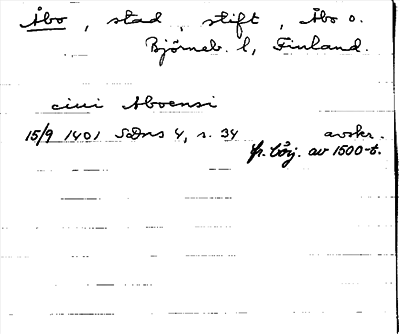 Åbo, stad, stift, Åbo o.
Björneb. l, Finland.
civi Aboensi
15/9 1401 SDns 4, s. 34 avskr.
fr. börj. av 1500-t.